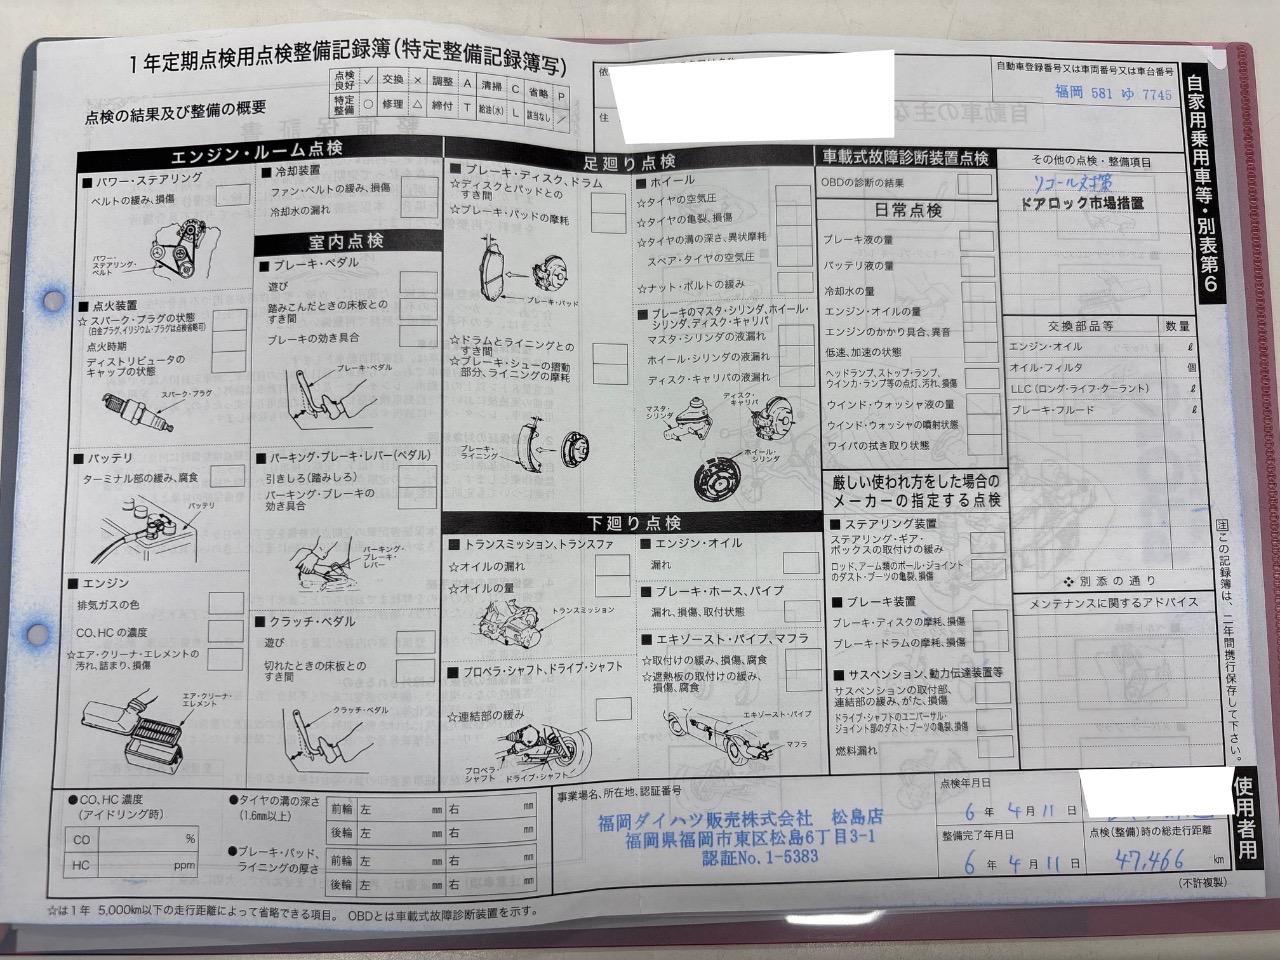 1年定期点検用点検整備記録簿(特定整備記録簿写)
点検の結果及び整備の概要
点検良好 ✓ 交換 × 調整 A 清掃 C 省略 P
特定整備 ○ 修理 △ 締付 T 給油(水) L 該当なし ／
依
住
自動車登録番号又は車両番号又は車台番号
福岡 581 ゆ 7745
自家用乗用車等・別表第6
エンジン・ルーム点検
■ パワー・ステアリング
ベルトの緩み、損傷
パワー・ステアリング・ベルト
■ 点火装置
☆ スパーク・プラグの状態
(白金プラグ,イリジウム・プラグは点検省略可)
点火時期
ディストリビュータの
キャップの状態
スパーク・プラグ
■ バッテリ
ターミナル部の緩み、腐食
バッテリ
■ エンジン
排気ガスの色
CO、HCの濃度
☆エア・クリーナ・エレメントの
汚れ、詰まり、損傷
エア・クリーナ・
エレメント
■ 冷却装置
ファン・ベルトの緩み、損傷
冷却水の漏れ
室内点検
■ ブレーキ・ペダル
遊び
踏みこんだときの床板との
すき間
ブレーキの効き具合
ブレーキ・ペダル
■ パーキング・ブレーキ・レバー(ペダル)
引きしろ(踏みしろ)
パーキング・ブレーキの
効き具合
パーキング・
ブレーキ・
レバー
■ クラッチ・ペダル
遊び
切れたときの床板との
すき間
クラッチ・ペダル
足廻り点検
■ ブレーキ・ディスク、ドラム
☆ディスクとパッドとの
すき間
☆ブレーキ・パッドの摩耗
ブレーキ・パッド
☆ドラムとライニングとの
すき間
☆ブレーキ・シューの摺動
部分、ライニングの摩耗
ブレーキ・
ライニング
■ ホイール
☆タイヤの空気圧
☆タイヤの亀裂、損傷
☆タイヤの溝の深さ、異状摩耗
スペア・タイヤの空気圧
☆ナット・ボルトの緩み
■ ブレーキのマスタ・シリンダ、ホイール・
シリンダ、ディスク・キャリパ
マスタ・シリンダの液漏れ
ホイール・シリンダの液漏れ
ディスク・キャリパの液漏れ
マスタ・
シリンダ
ディスク・
キャリパ
ホイール・
シリンダ
下廻り点検
■ トランスミッション、トランスファ
☆オイルの漏れ
☆オイルの量
トランスミッション
■ プロペラ・シャフト、ドライブ・シャフト
☆連結部の緩み
プロペラ・
シャフト
ドライブ・シャフト
■ エンジン・オイル
漏れ
■ ブレーキ・ホース、パイプ
漏れ、損傷、取付状態
■ エキゾースト・パイプ、マフラ
☆取付けの緩み、損傷、腐食
☆遮熱板の取付けの緩み、
損傷、腐食
エキゾースト・パイプ
マフラ
車載式故障診断装置点検
OBDの診断の結果
日常点検
ブレーキ液の量
バッテリ液の量
冷却水の量
エンジン・オイルの量
エンジンのかかり具合、異音
低速、加速の状態
ヘッドランプ、ストップ・ランプ、
ウインカ・ランプ等の点灯、汚れ、損傷
ウインド・ウォッシャ液の量
ウインド・ウォッシャの噴射状態
ワイパの拭き取り状態
厳しい使われ方をした場合の
メーカーの指定する点検
■ ステアリング装置
ステアリング・ギア・
ボックスの取付けの緩み
ロッド、アーム類のボール・ジョイント
のダスト・ブーツの亀裂、損傷
■ ブレーキ装置
ブレーキ・ディスクの摩耗、損傷
ブレーキ・ドラムの摩耗、損傷
■ サスペンション、動力伝達装置等
サスペンションの取付部、
連結部の緩み、がた、損傷
ドライブ・シャフトのユニバーサル・
ジョイント部のダスト・ブーツの亀裂、損傷
燃料漏れ
その他の点検・整備項目
リコール対策
ドアロック市場措置
交換部品等 数量
エンジン・オイル ℓ
オイル・フィルタ 個
LLC(ロング・ライフ・クーラント) ℓ
ブレーキ・フルード ℓ
❖ 別添の通り
メンテナンスに関するアドバイス
注 この記録簿は、二年間携行保存して下さい。
使用者用
●CO、HC濃度
(アイドリング時)
CO %
HC ppm
●タイヤの溝の深さ
(1.6mm以上)
前輪 左 mm 右 mm
後輪 左 mm 右 mm
●ブレーキ・パッド、
ライニングの厚さ
前輪 左 mm 右 mm
後輪 左 mm 右 mm
事業場名、所在地、認証番号
福岡ダイハツ販売株式会社 松島店
福岡県福岡市東区松島6丁目3-1
認証No.1-5383
点検年月日
6 年 4 月 11 日
整備完了年月日
6 年 4 月 11 日
点検(整備)時の総走行距離
47,466 km
(不許複製)
☆は1年 5,000km以下の走行距離によって省略できる項目。 OBDとは車載式故障診断装置を示す。